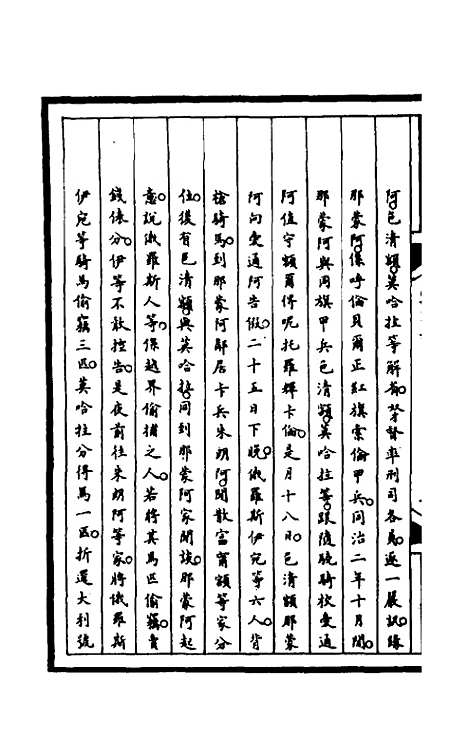 阿。色清額。莫哈拉等解前。奴才督率刑司各員。逐一嚴訊。緣
那蒙阿。係呼倫貝爾正紅旗索倫甲兵。同治二年十月間。
那蒙阿與同旗甲兵色清額。莫哈拉等。跟隨驍騎校愛通
阿值守額爾得呢托羅輝卡倫。是月十八日。色清額那蒙
阿向愛通阿告假。二十五日下晚。俄羅斯伊宛等六人。皆
槍騎馬。到那蒙阿鄰居卡兵朱朗阿。閒散富甯額等家分
住。後有色清額。與莫哈拉。同到那蒙阿家閒談。那蒙阿起
意。說俄羅斯人等。係越界偷捕之人。若將其馬匹偷竊。賣
錢俵分。伊等不敢控告。是夜前往朱朗阿等家。將俄羅斯
伊宛等騎馬偷竊三匹。莫哈拉分得馬一匹。折還大利號